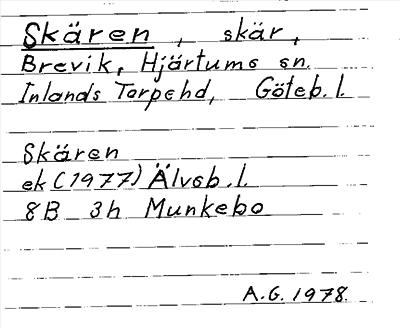 Skären, skär,
Brevik, Hjärtums sn.
Inlands Torpehd, Göteb. l.
Skären
ek (1977) Älvsb. l.
8B 3h Munkebo
A.G. 1978.